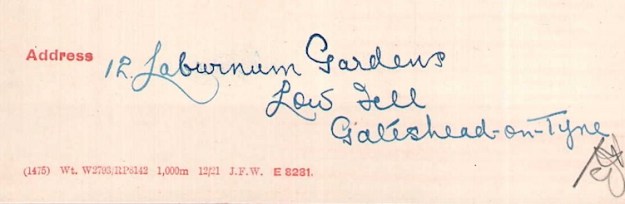 Address 12. Laburnum Gardens
Low Fell
Gateshead-on-Tyne
(1475) Wt. W2793/RP8142 1,000m 12/21 J.F.W. E 8281.